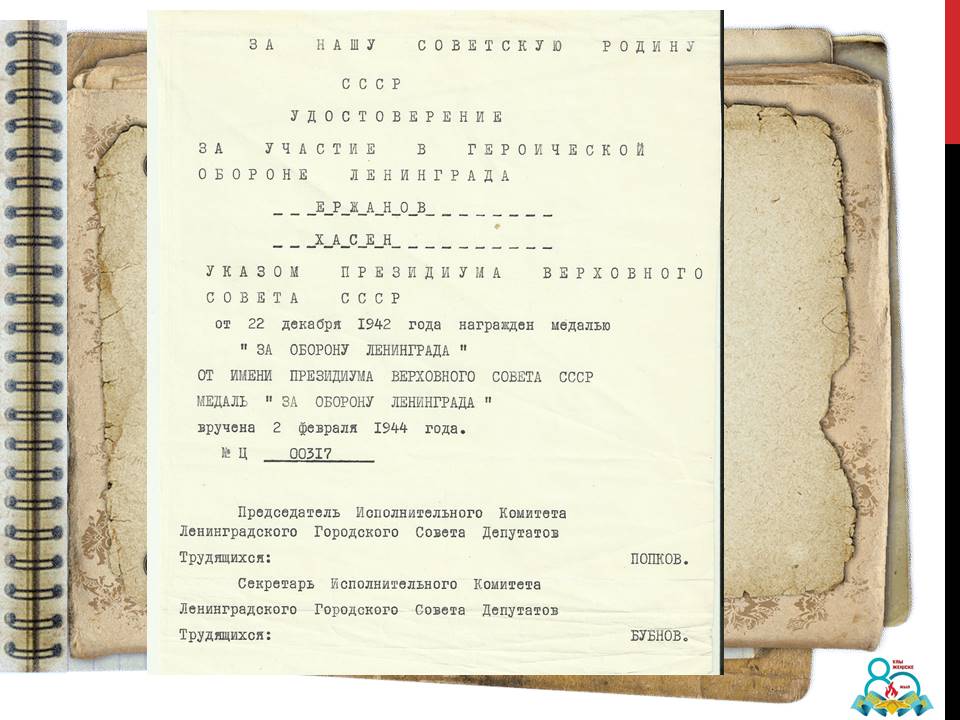 З А   Н А Ш У   С О В Е Т С К У Ю   Р О Д И Н У
С С С Р
У Д О С Т О В Е Р Е Н И Е
З А   У Ч А С Т И Е   В   Г Е Р О И Ч Е С К О Й
О Б О Р О Н Е   Л Е Н И Н Г Р А Д А
_ _ _Е Р Ж А Н О В_ _ _ _ _ _ _ _
_ _ _Х А С Е Н_ _ _ _ _ _ _ _ _ _
У К А З О М   П Р Е З И Д И У М А   В Е Р Х О В Н О Г О
С О В Е Т А   С С С Р
от 22 декабря 1942 года награжден медалью
" ЗА ОБОРОНУ ЛЕНИНГРАДА "
ОТ ИМЕНИ ПРЕЗИДИУМА ВЕРХОВНОГО СОВЕТА СССР
МЕДАЛЬ " ЗА ОБОРОНУ ЛЕНИНГРАДА "
вручена 2 февраля 1944 года.
№ Ц __00317____
Председатель Исполнительного Комитета
Ленинградского Городского Совета Депутатов
Трудящихся: ПОПКОВ.
Секретарь Исполнительного Комитета
Ленинградского Городского Совета Депутатов
Трудящихся: БУБНОВ.
ҰЛЫ
ЖЕҢІСКЕ
80
ЖЫЛ